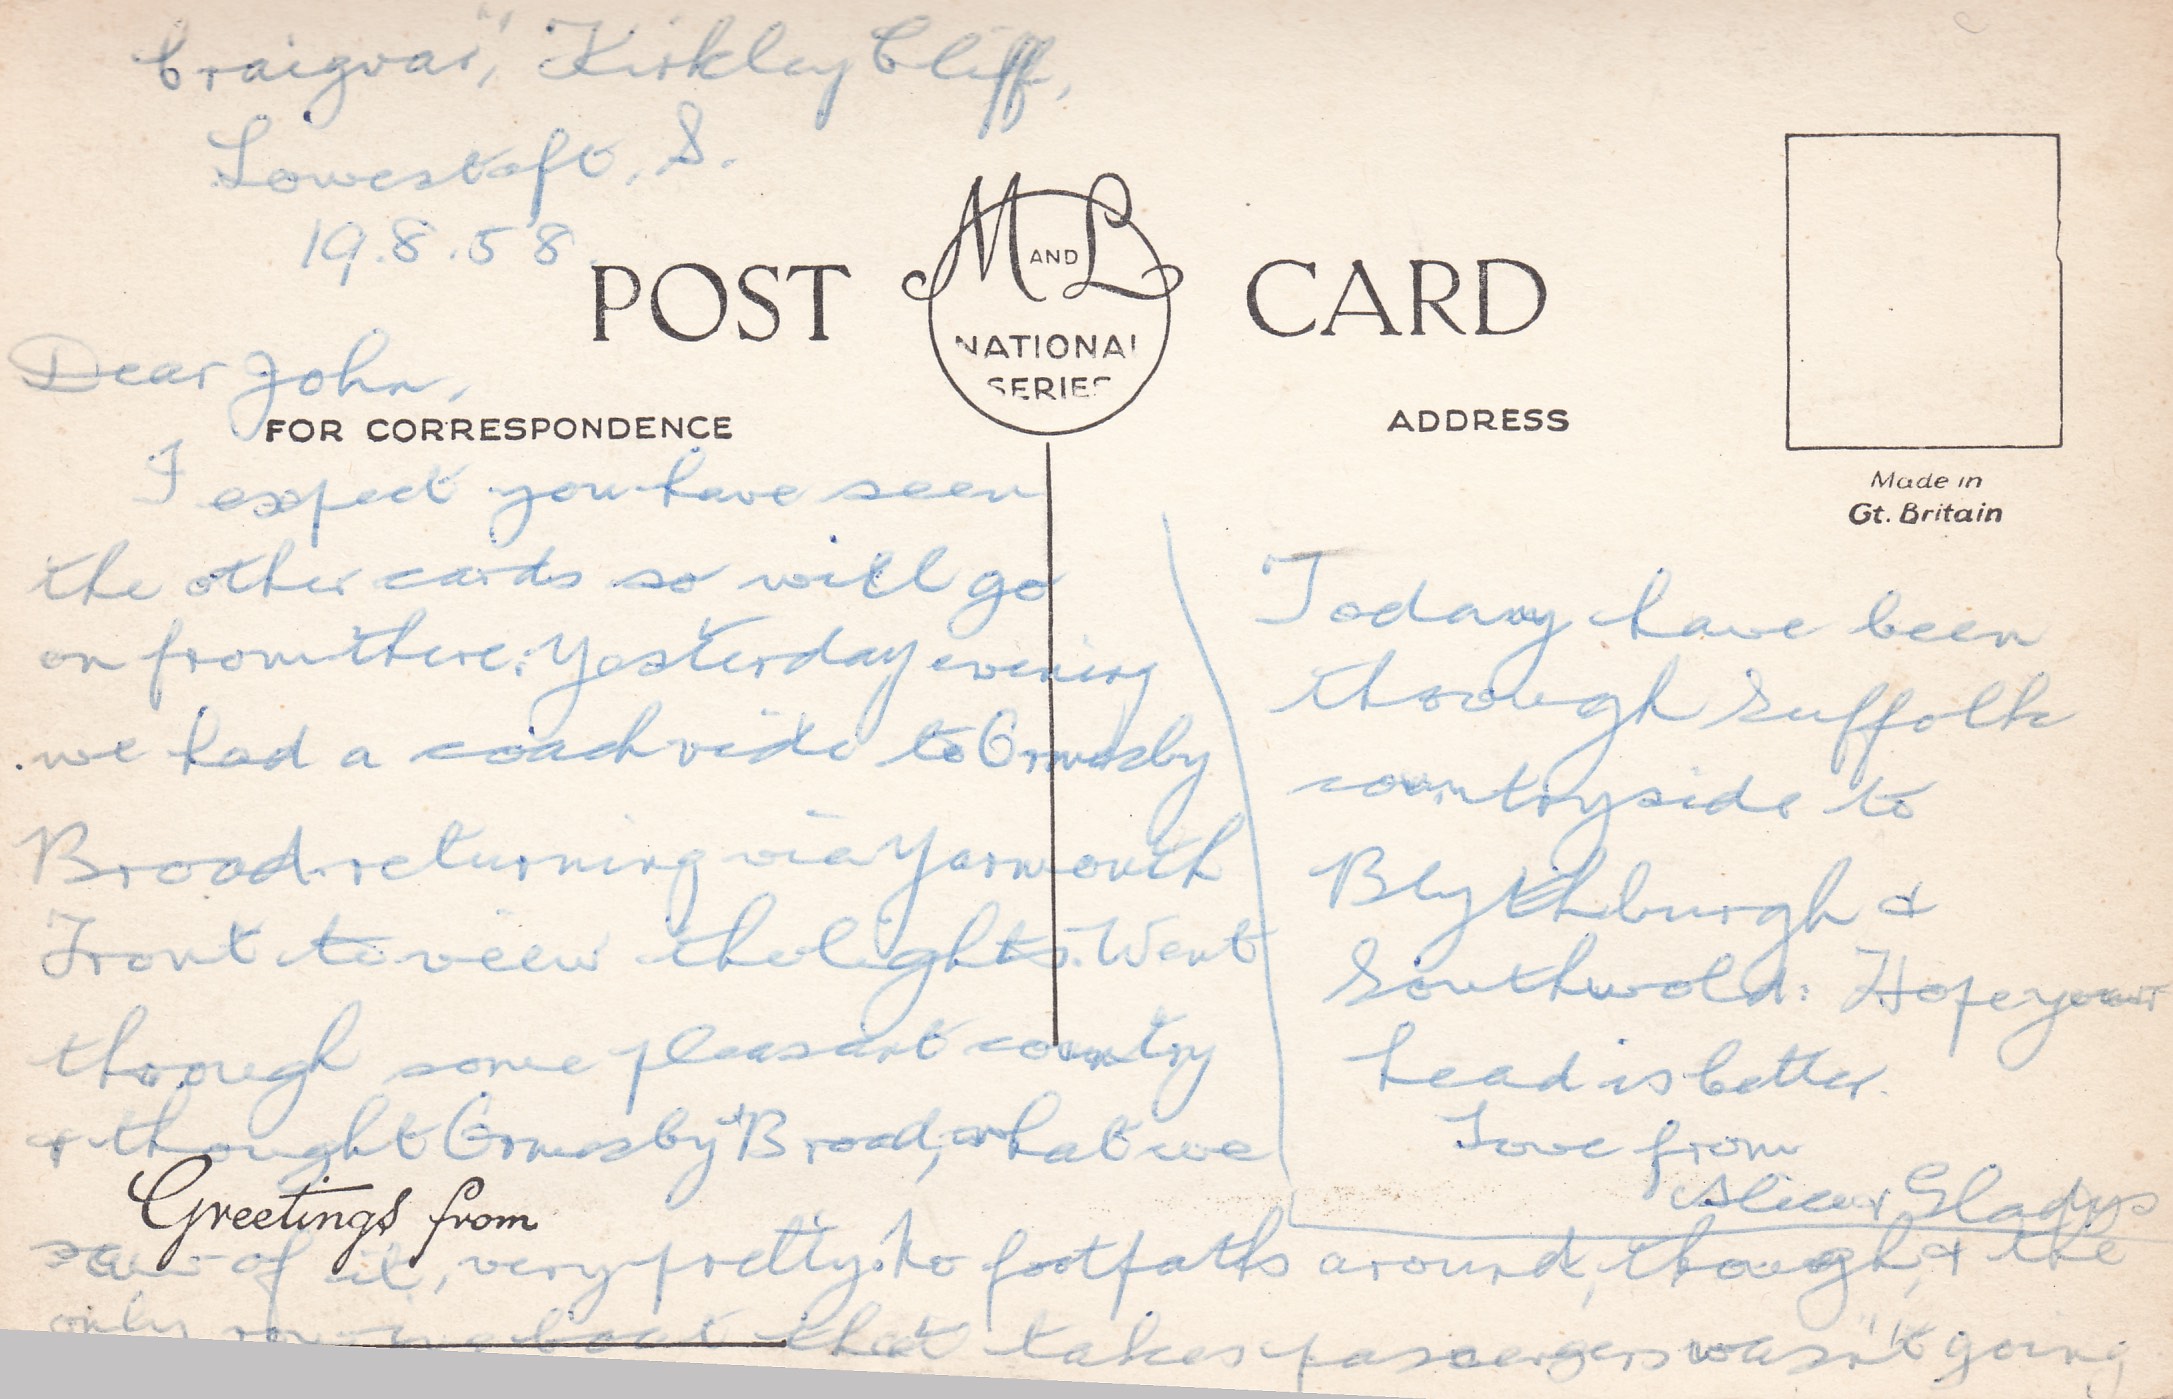 "Craigvar", Kirkley Cliff,
Lowestoft, S.
19.8.58.
POST
M AND L
NATIONAL
SERIES
CARD
Dear John,
FOR CORRESPONDENCE
ADDRESS
Made in
Gt. Britain
I expect you have seen
the other cards so will go
on from there. Yesterday evening
we had a coach ride to Ormesby
Broad returning via Yarmouth
Front to view the lights. Went
through some pleasant country
& thought Ormesby Broad, what we
Greetings from
saw of it, very pretty. No footpaths around, though, & the
only rowing boat that takes passengers wasn't going
Today have been
through Suffolk
countryside to
Blythburgh &
Southwold. Hope your
head is better.
Love from
Gladys